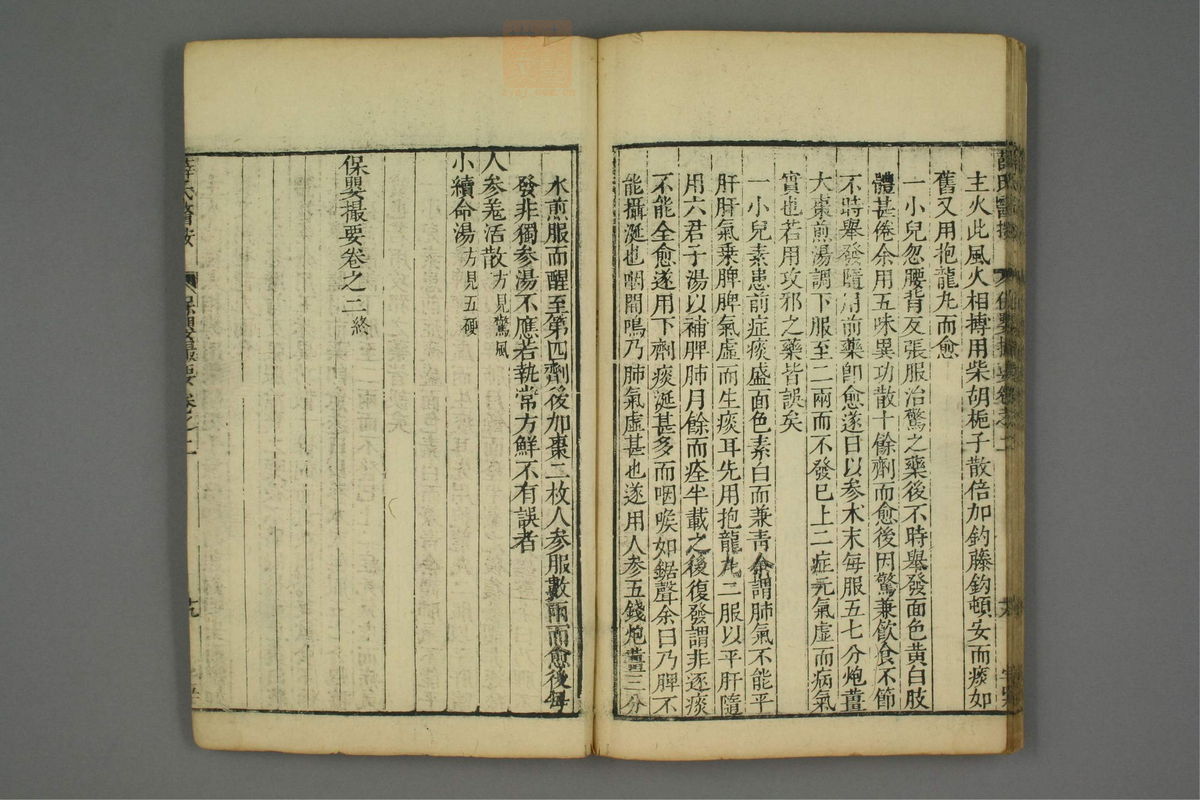 主火此風火相搏用柴胡梔子散倍加鈎藤鈎頓安而痰如
舊又用抱龍丸而愈
一小兒忽腰背反張服治驚之藥後不時舉發面色黃白肢
體甚倦余用五味異功散十餘劑而愈後因驚兼飲食不節
不時舉發隨用前藥卽愈遂日以參木末每服五七分炮薑
大棗煎湯調下服至二兩而不發已上二症元氣虛而病氣
實也若用攻邪之藥皆誤矣
一小兒素患前症痰盛面色素白而兼青余謂肺氣不能平
肝肝氣乘脾脾氣虛而生痰耳先用抱龍丸二服以平肝隨
用六君子湯以補脾肺月餘而痊半載之後復發謂非逐痰
不能全愈遂用下劑痰涎甚多而咽喉如鋸聲余曰乃脾不
能攝涎也咽間鳴乃肺氣虛甚也遂用人參五錢炮薑三分
水煎服而醒至第四劑後加棗二枚人參服數兩而愈後每
發非獨參湯不應若執常方鮮不有誤者
人參羗活散方見驚風
小續命湯方見五硬
保嬰撮要卷之二終
薛氏醫按
保嬰撮要卷之二